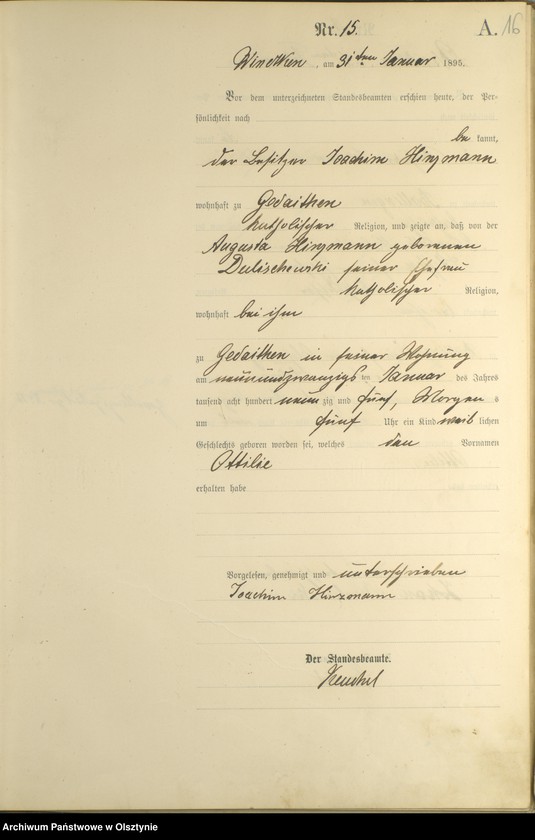 Nr. 15.
A. 16
Windtken, am 31ten Januar 1895.
Vor dem unterzeichneten Standesbeamten erschien heute, der Per-
sönlichkeit nach
be kannt,
der Besitzer Joachim Hinzmann
wohnhaft zu Gedaithen
katholischer Religion, und zeigte an, daß von der
Augusta Hinzmann geborenen
Dulischewski seiner Ehefrau
katholischer Religion,
wohnhaft bei ihm
zu Gedaithen in seiner Wohnung
am neunundzwanzigs ten Januar des Jahres
tausend acht hundert neun zig und fünf, Morgen s
um fünf Uhr ein Kind weib lichen
Geschlechts geboren worden sei, welches den Vornamen
Ottilie
erhalten habe
Vorgelesen, genehmigt und unterschrieben
Joachim Hinzmann
Der Standesbeamte.
Archiwum Państwowe w Olsztynie